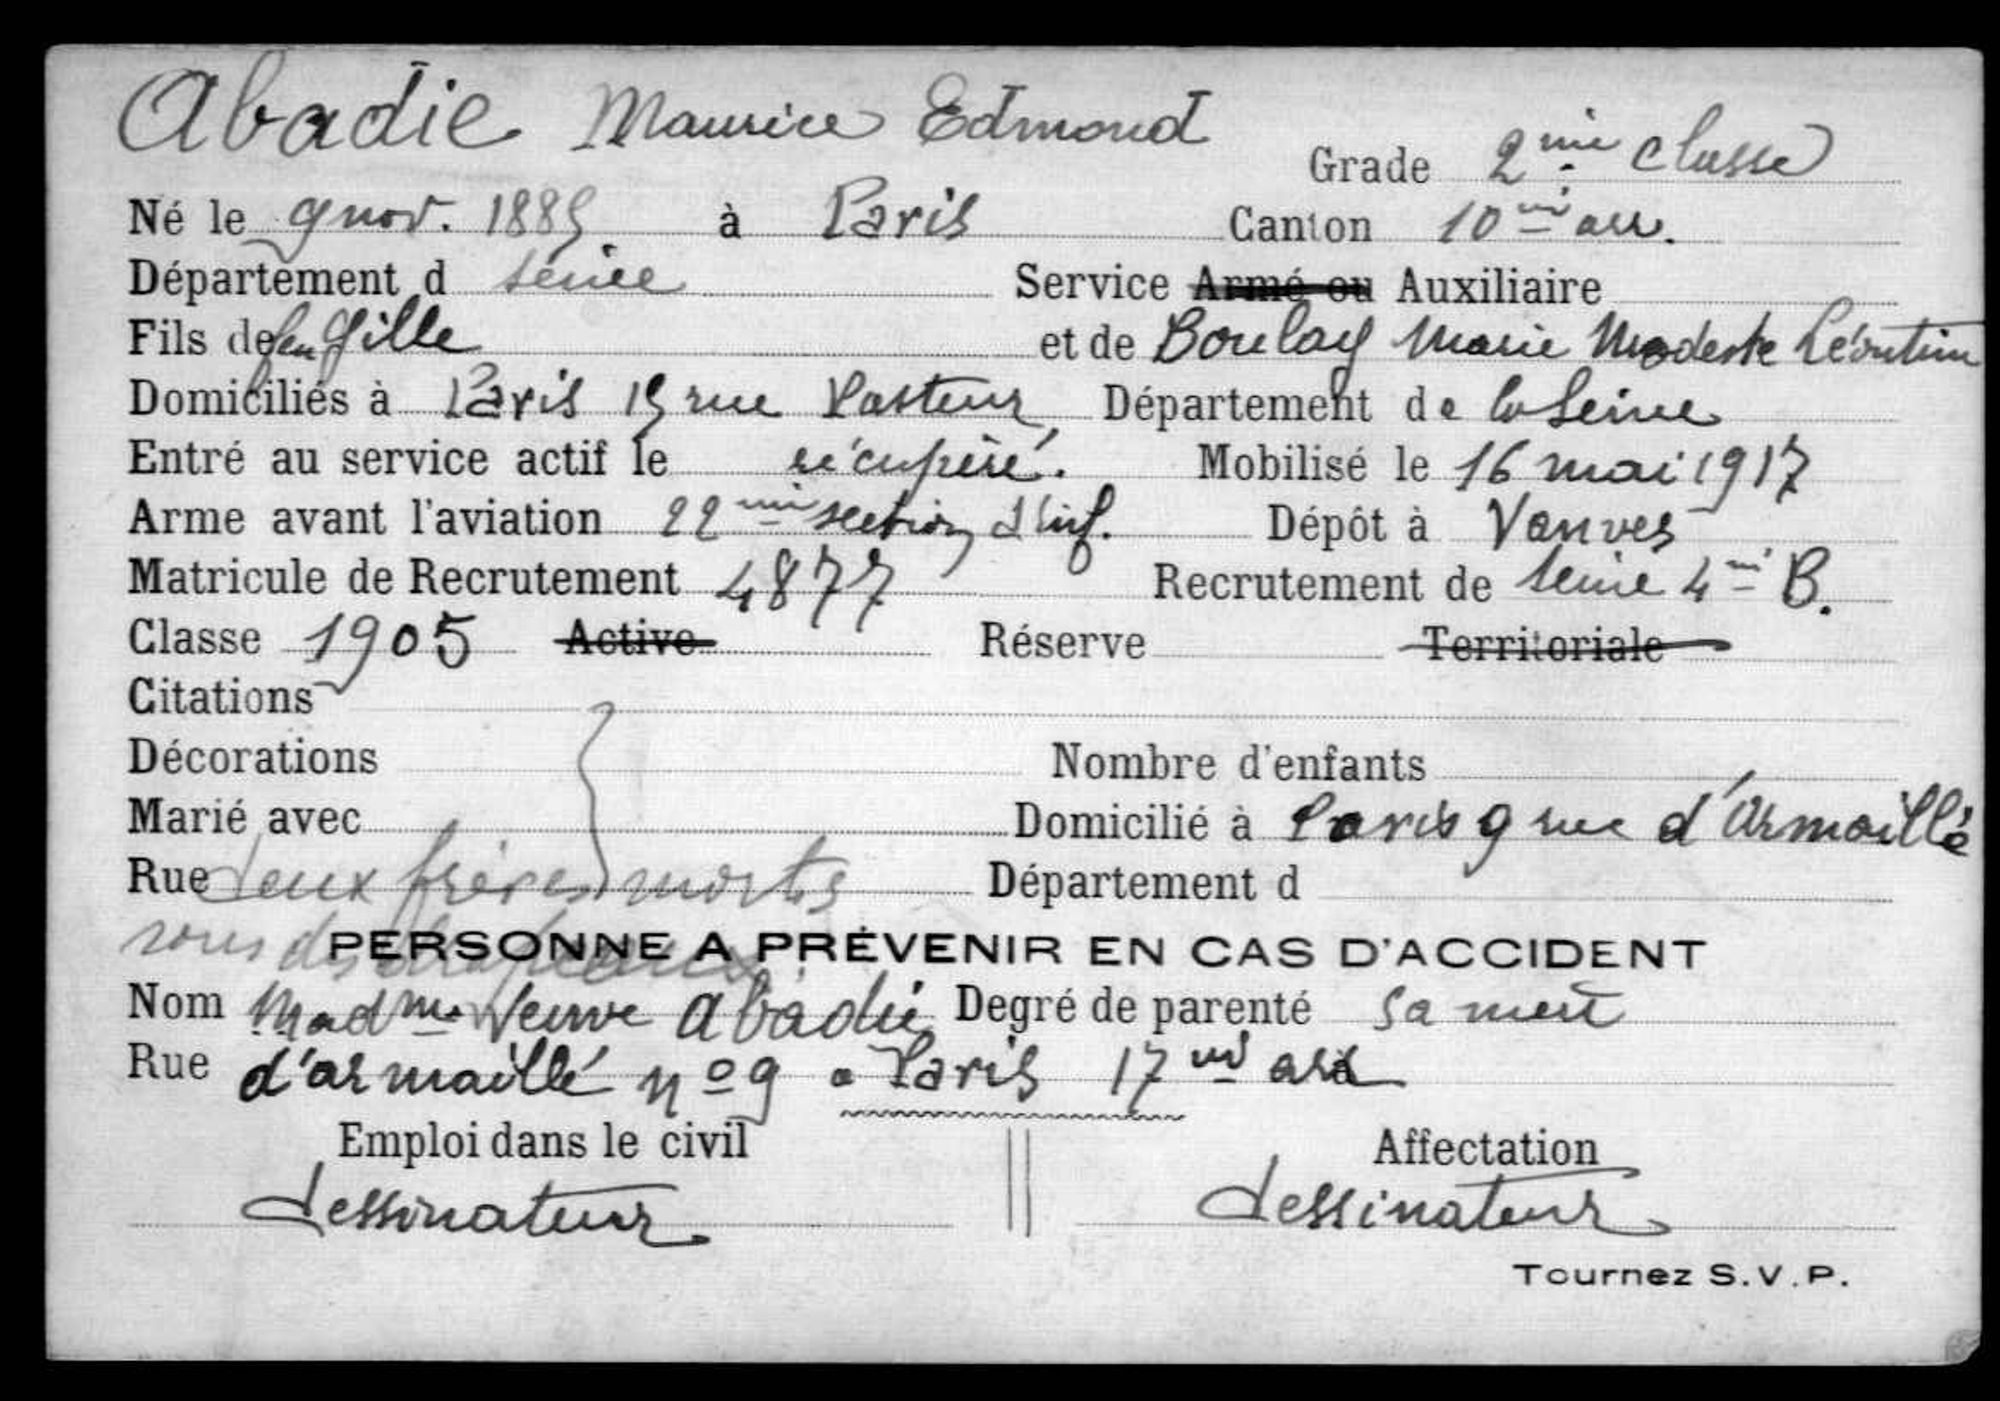 Abadie Maurice Edmond
Grade 2ème classe
Né le 9 nov. 1885 à Paris Canton 10me arr.
Département d Seine Service Armé ou Auxiliaire
Fils de feu Gille et de Boulay Marie Modeste Léontine
Domiciliés à Paris 15 rue Pasteur, Département de la Seine
Entré au service actif le récupéré. Mobilisé le 16 mai 1917
Arme avant l'aviation 22me section d'inf. Dépôt à Vanves
Matricule de Recrutement 4877 Recrutement de Seine 4me B.
Classe 1905 Active Réserve Territoriale
Citations
Décorations Nombre d'enfants
Marié avec Domicilié à Paris 9 rue d'Armaillé
Rue deux frères morts Département d
sous des drapeaux
PERSONNE A PRÉVENIR EN CAS D'ACCIDENT
Nom Madme Veuve Abadie Degré de parenté Sa mère
Rue d'armaillé no 9 à Paris 17me arr
Emploi dans le civil Affectation
dessinateur dessinateur
Tournez S.V.P.